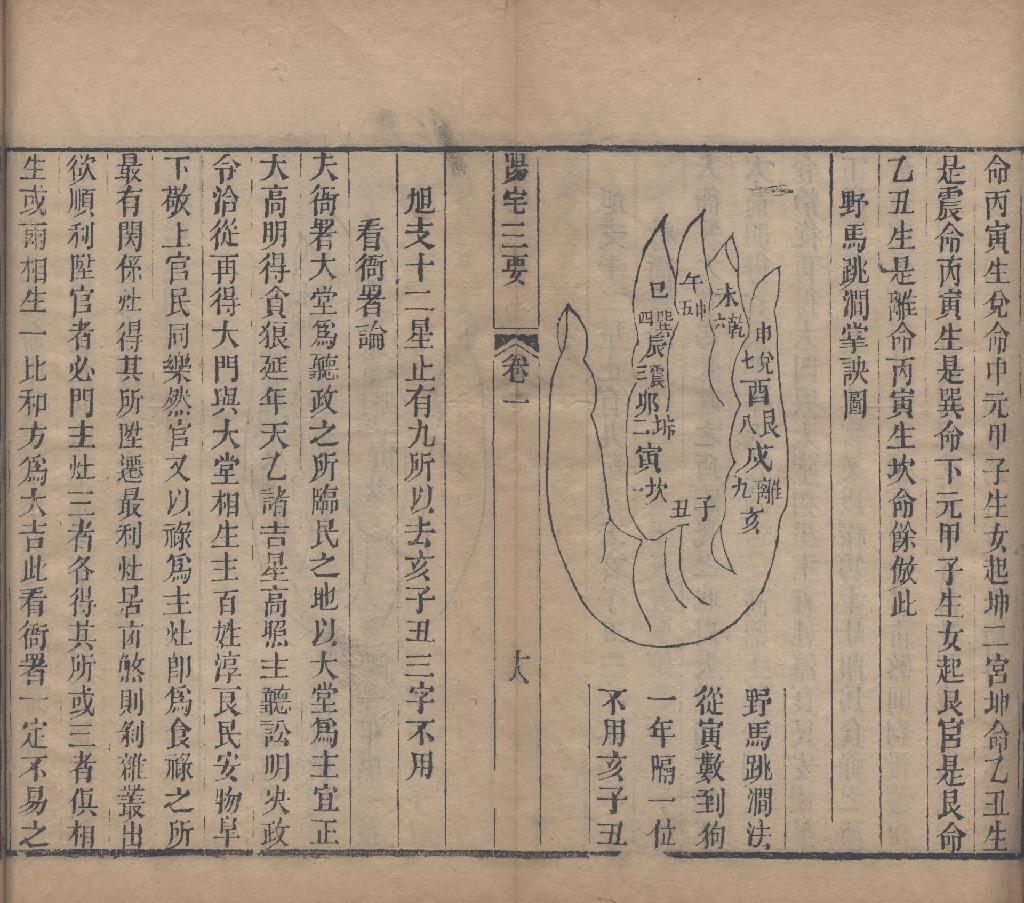 命丙寅生兌命中元甲子生女起坤二宮坤命乙丑生
是震命丙寅生是巽命下元甲子生女起艮宮是艮命
乙丑生是離命丙寅生坎命餘倣此
野馬跳澗掌訣圖
巳 巽四
辰 震三
卯 坤二
寅 坎一
午 中五
未 乾六
申 兌七
酉 艮八
戌 離九
亥
子
丑
野馬跳澗法
從寅數到狗
一年隔一位
不用亥子丑
陽宅三要
卷一
十八
旭支十二星止有九所以去亥子丑三字不用
看衙署論
夫衙署大堂爲聽政之所臨民之地以大堂爲主宜正
大高明得貪狼延年天乙諸吉星高照主聽訟明决政
令洽從再得大門與大堂相生主百姓淳良民安物阜
下敬上官民同樂然官又以祿爲主灶卽爲食祿之所
最有関係灶得其所陞遷最利灶居凶煞則剝雜叢出
欲順利陞官者必門主灶三者各得其所或三者俱相
生或兩相生一比和方爲大吉此看衙署一定不易之